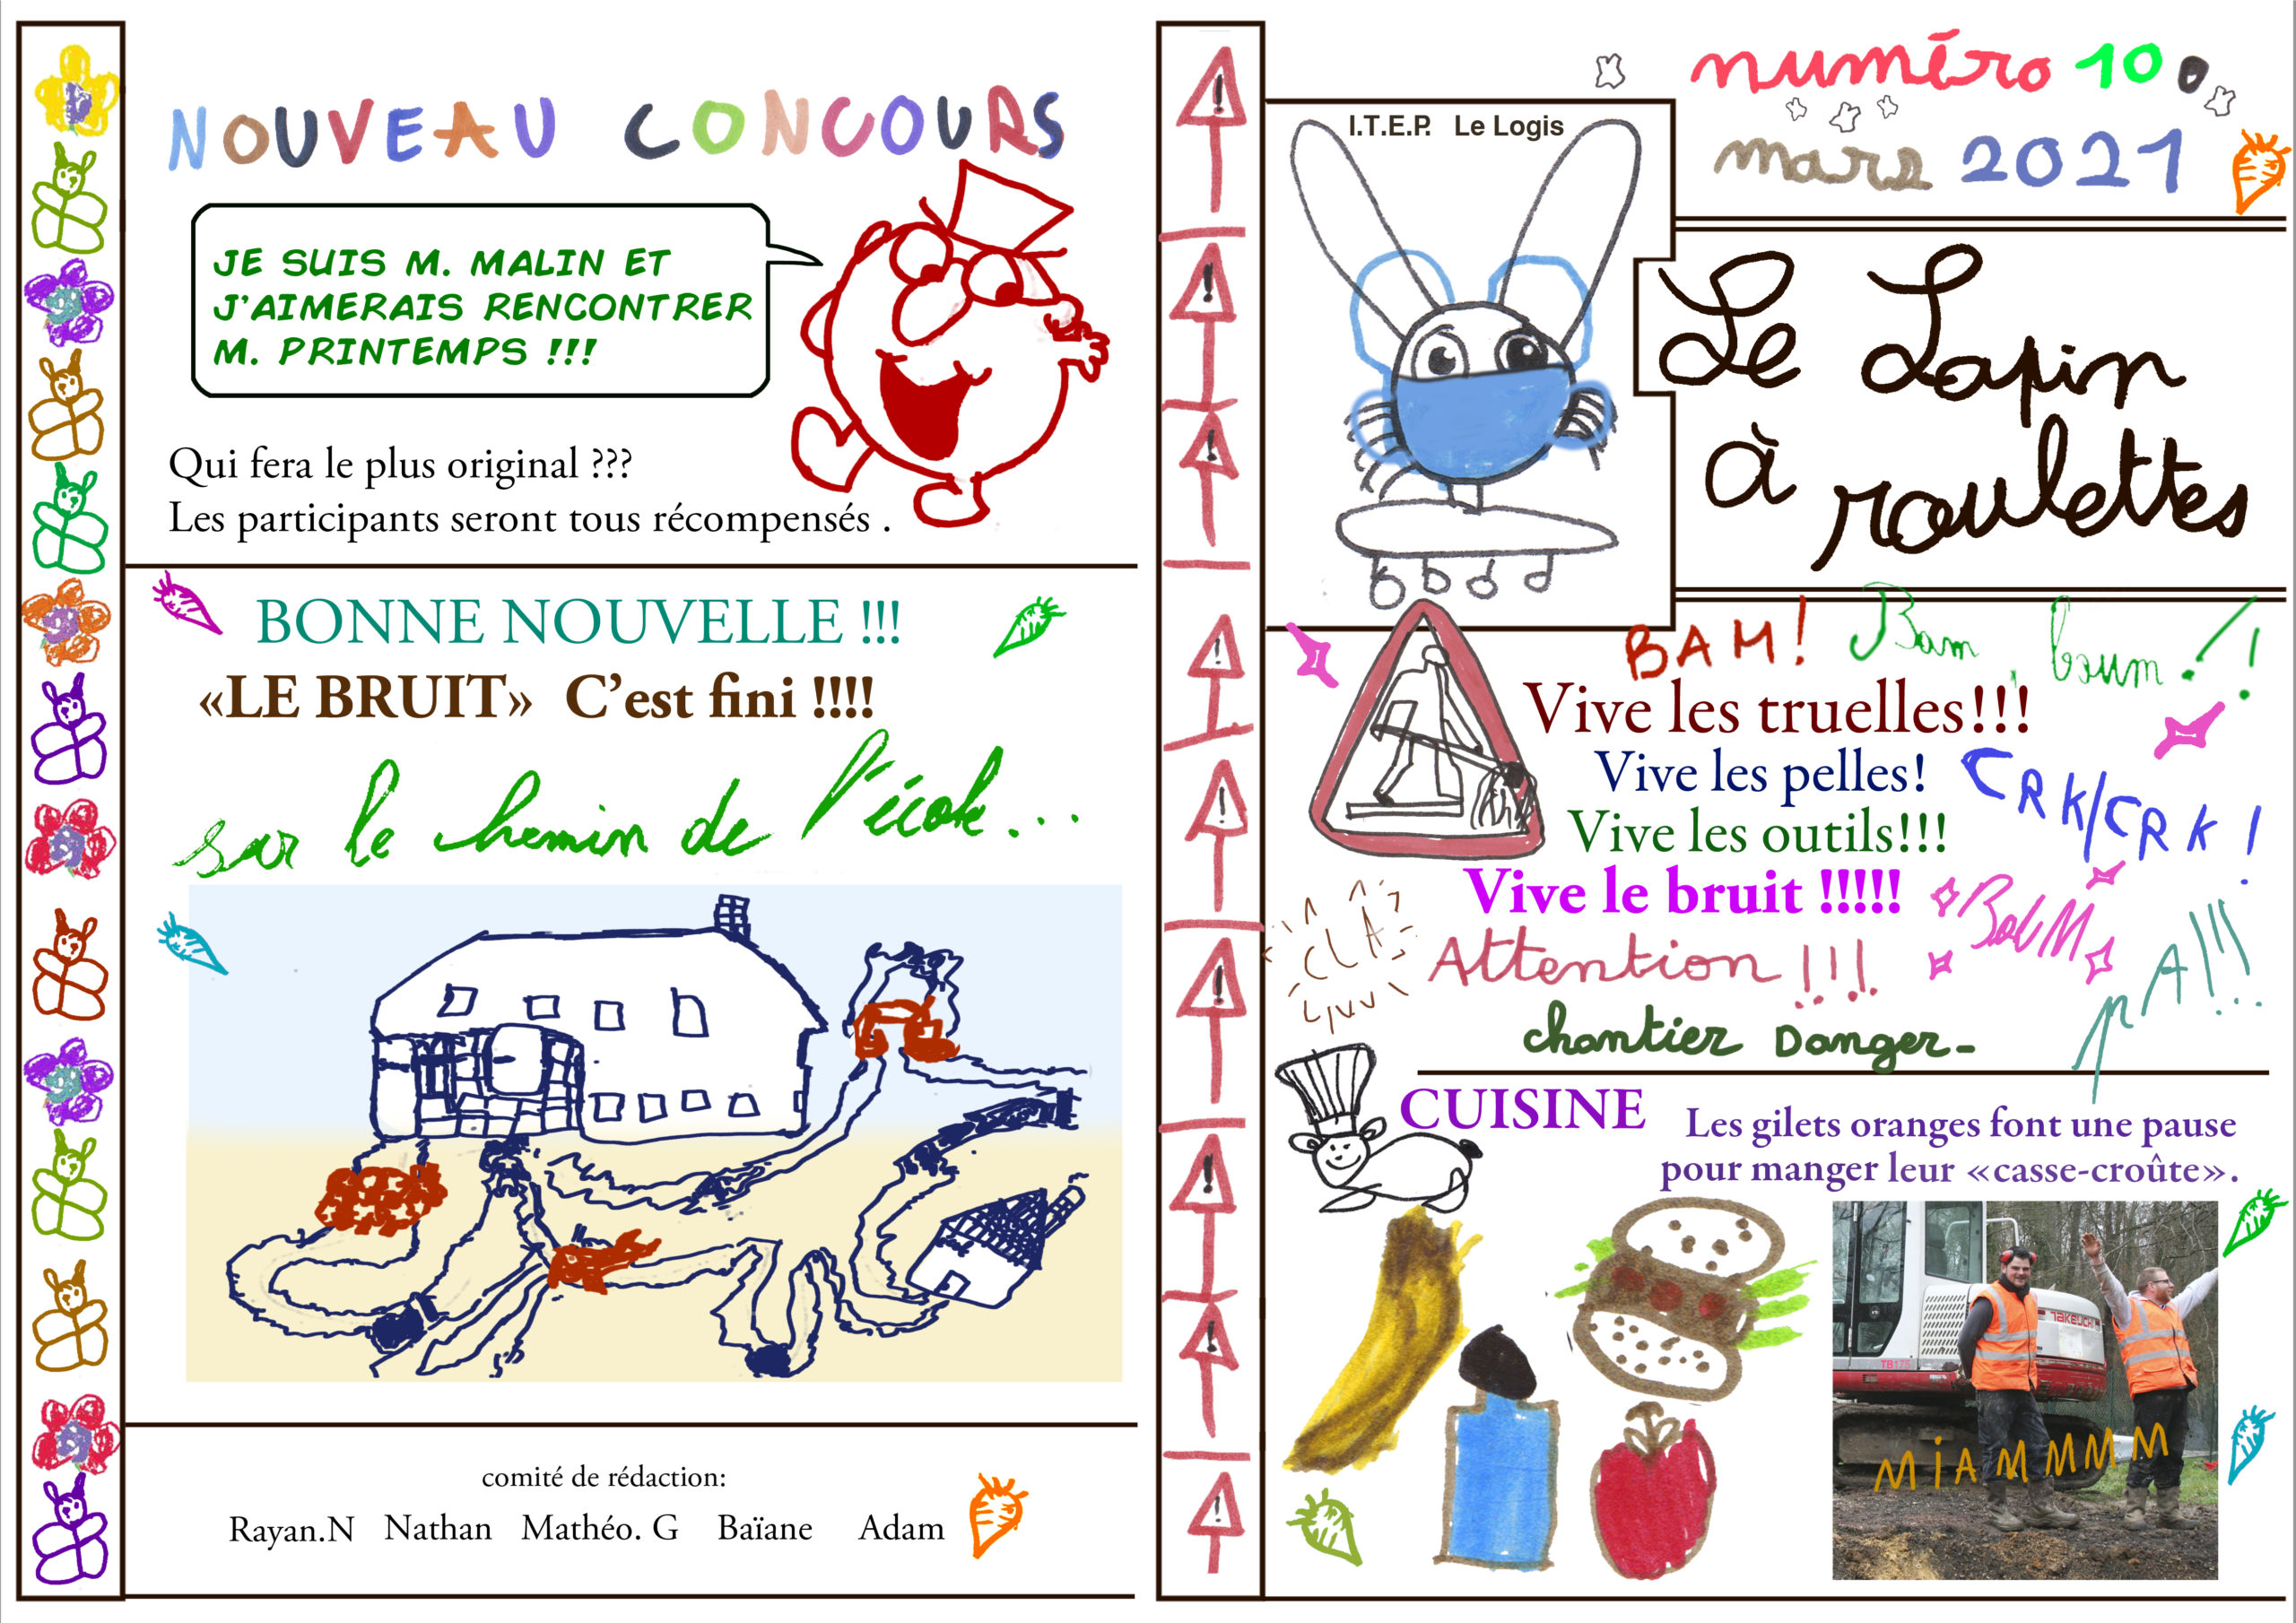 NOUVEAU CONCOURS
JE SUIS M. MALIN ET
J'AIMERAIS RENCONTRER
M. PRINTEMPS !!!
Qui fera le plus original ???
Les participants seront tous récompensés .
BONNE NOUVELLE !!!
«LE BRUIT» C'est fini !!!!
sur le chemin de l'école...
comité de rédaction:
Rayan.N Nathan Mathéo. G Baïane Adam
numéro 10
mars 2021
I.T.E.P. Le Logis
Le Lapin
à roulettes
BAM! Bam, boum!!
Vive les truelles!!!
Vive les pelles!
CRK/CRK!
Vive les outils!!!
Vive le bruit !!!!!
BOUM
CLA
Attention !!!
chantier Danger-
CUISINE
Les gilets oranges font une pause
pour manger leur «casse-croûte».
TAKEUCHI
TB175
MIAMMMM